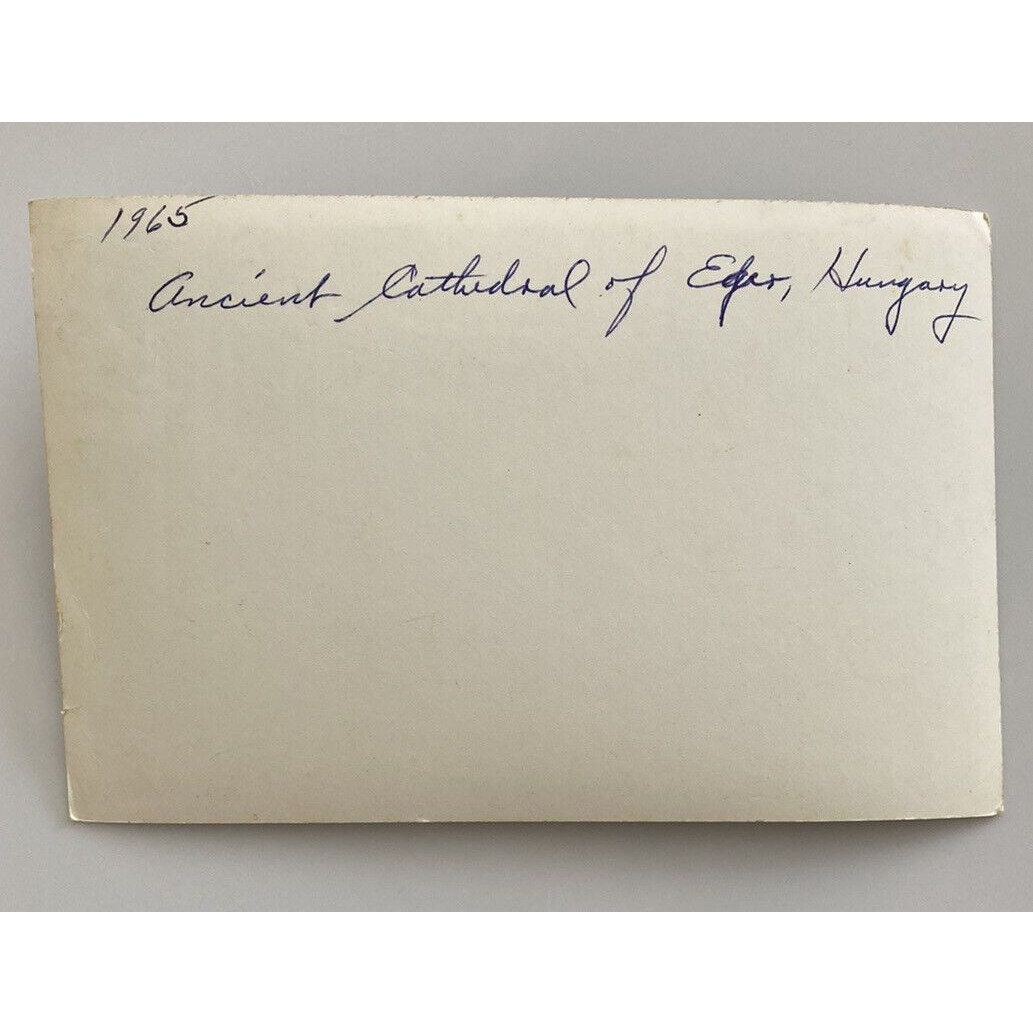 1965
Ancient Cathedral of Eger, Hungary